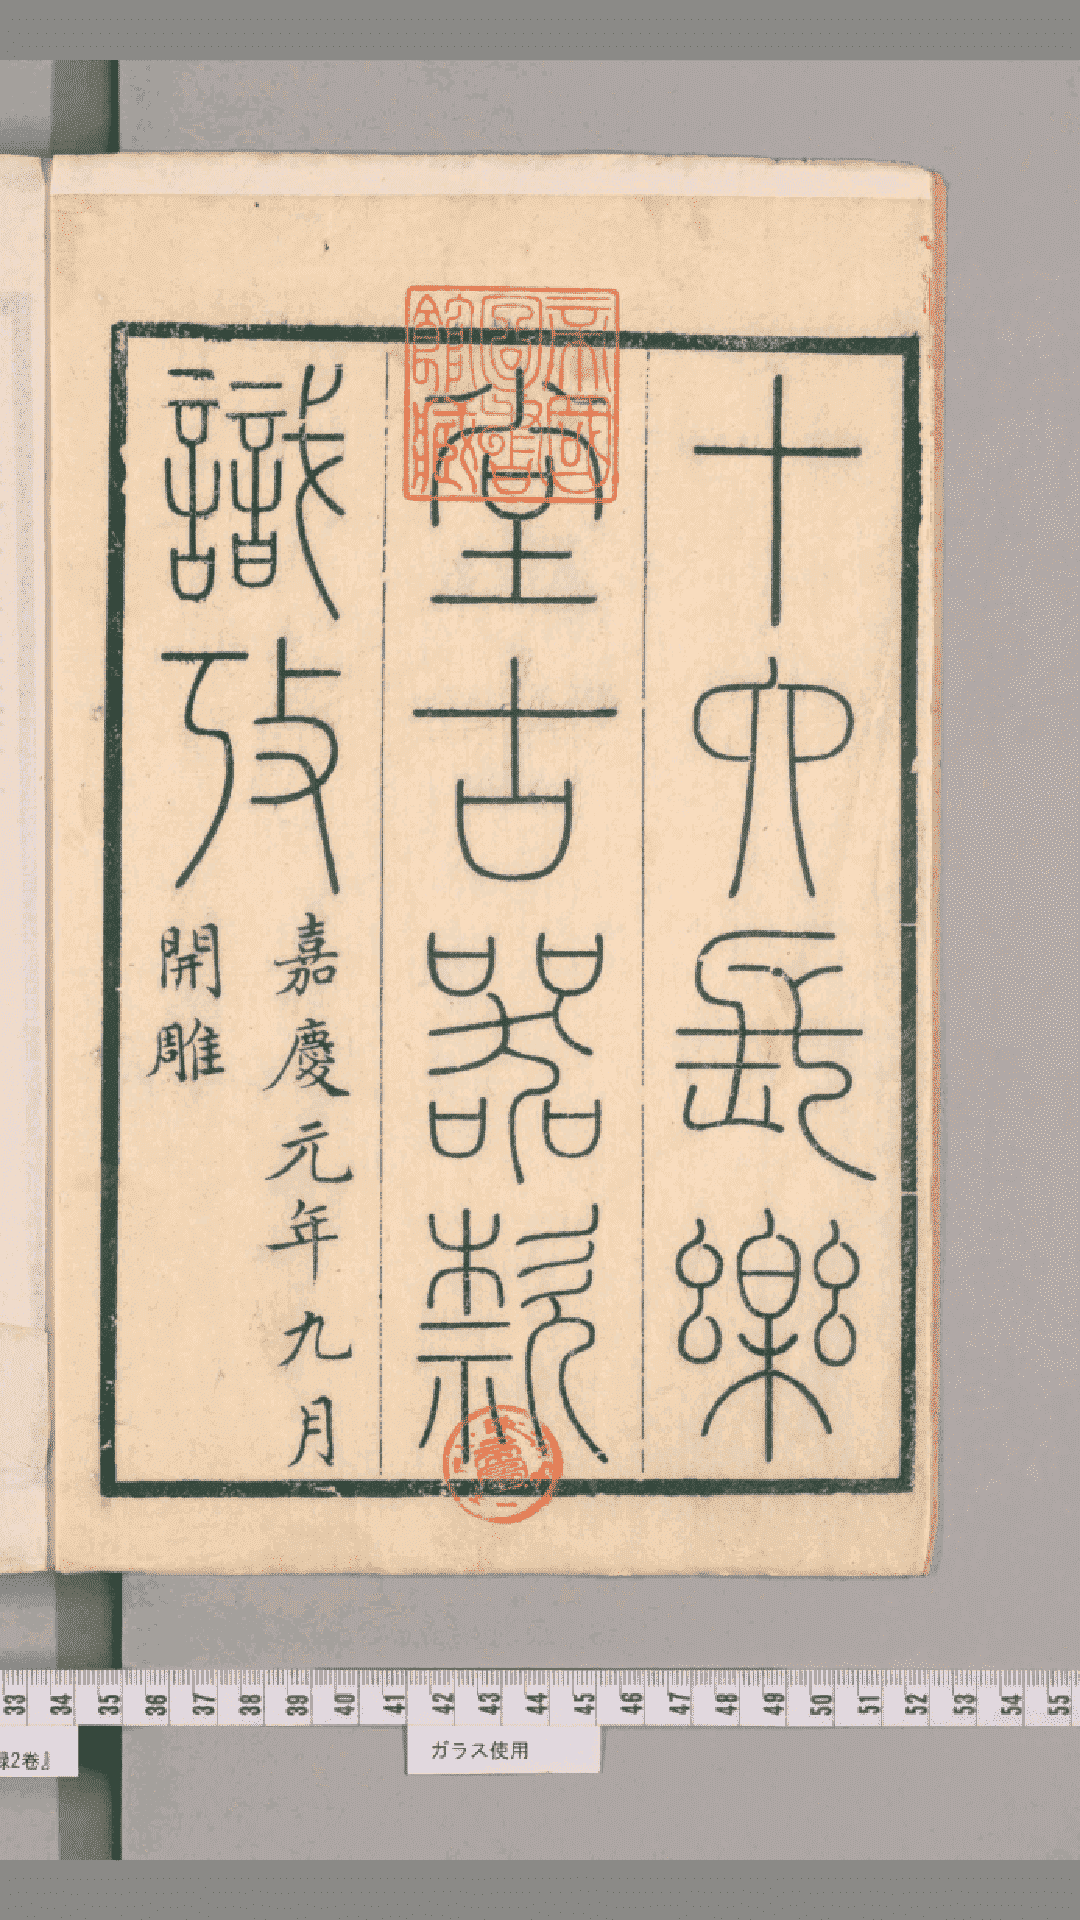 十六長樂
堂古器款
識攷
嘉慶元年九月
開雕
帝國
圖書
館藏
33 34 35 36 37 38 39 40 41 42 43 44 45 46 47 48 49 50 51 52 53 54 55
録2巻』
ガラス使用